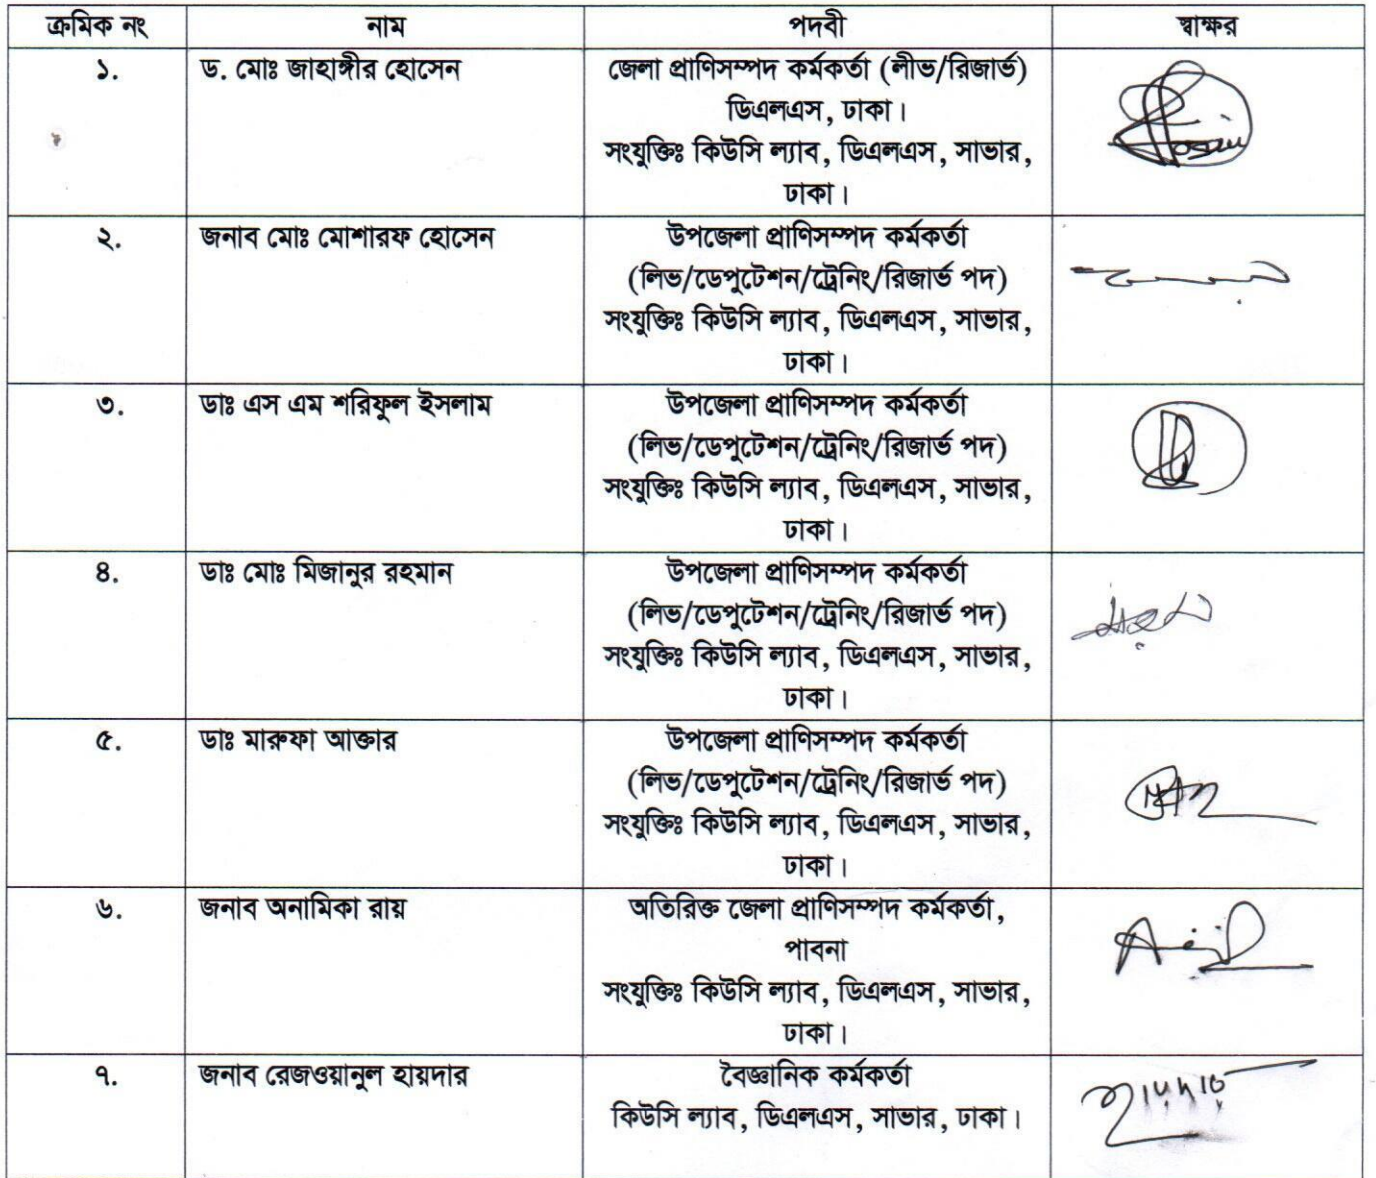 ক্রমিক নং নাম পদবী স্বাক্ষর
১. ড. মোঃ জাহাঙ্গীর হোসেন জেলা প্রাণিসম্পদ কর্মকর্তা (লীভ/রিজার্ভ)
ডিএলএস, ঢাকা।
সংযুক্তিঃ কিউসি ল্যাব, ডিএলএস, সাভার,
ঢাকা।
২. জনাব মোঃ মোশারফ হোসেন উপজেলা প্রাণিসম্পদ কর্মকর্তা
(লিভ/ডেপুটেশন/ট্রেনিং/রিজার্ভ পদ)
সংযুক্তিঃ কিউসি ল্যাব, ডিএলএস, সাভার,
ঢাকা।
৩. ডাঃ এস এম শরিফুল ইসলাম উপজেলা প্রাণিসম্পদ কর্মকর্তা
(লিভ/ডেপুটেশন/ট্রেনিং/রিজার্ভ পদ)
সংযুক্তিঃ কিউসি ল্যাব, ডিএলএস, সাভার,
ঢাকা।
৪. ডাঃ মোঃ মিজানুর রহমান উপজেলা প্রাণিসম্পদ কর্মকর্তা
(লিভ/ডেপুটেশন/ট্রেনিং/রিজার্ভ পদ)
সংযুক্তিঃ কিউসি ল্যাব, ডিএলএস, সাভার,
ঢাকা।
৫. ডাঃ মারুফা আক্তার উপজেলা প্রাণিসম্পদ কর্মকর্তা
(লিভ/ডেপুটেশন/ট্রেনিং/রিজার্ভ পদ)
সংযুক্তিঃ কিউসি ল্যাব, ডিএলএস, সাভার,
ঢাকা।
৬. জনাব অনামিকা রায় অতিরিক্ত জেলা প্রাণিসম্পদ কর্মকর্তা,
পাবনা
সংযুক্তিঃ কিউসি ল্যাব, ডিএলএস, সাভার,
ঢাকা।
৭. জনাব রেজওয়ানুল হায়দার বৈজ্ঞানিক কর্মকর্তা
কিউসি ল্যাব, ডিএলএস, সাভার, ঢাকা।